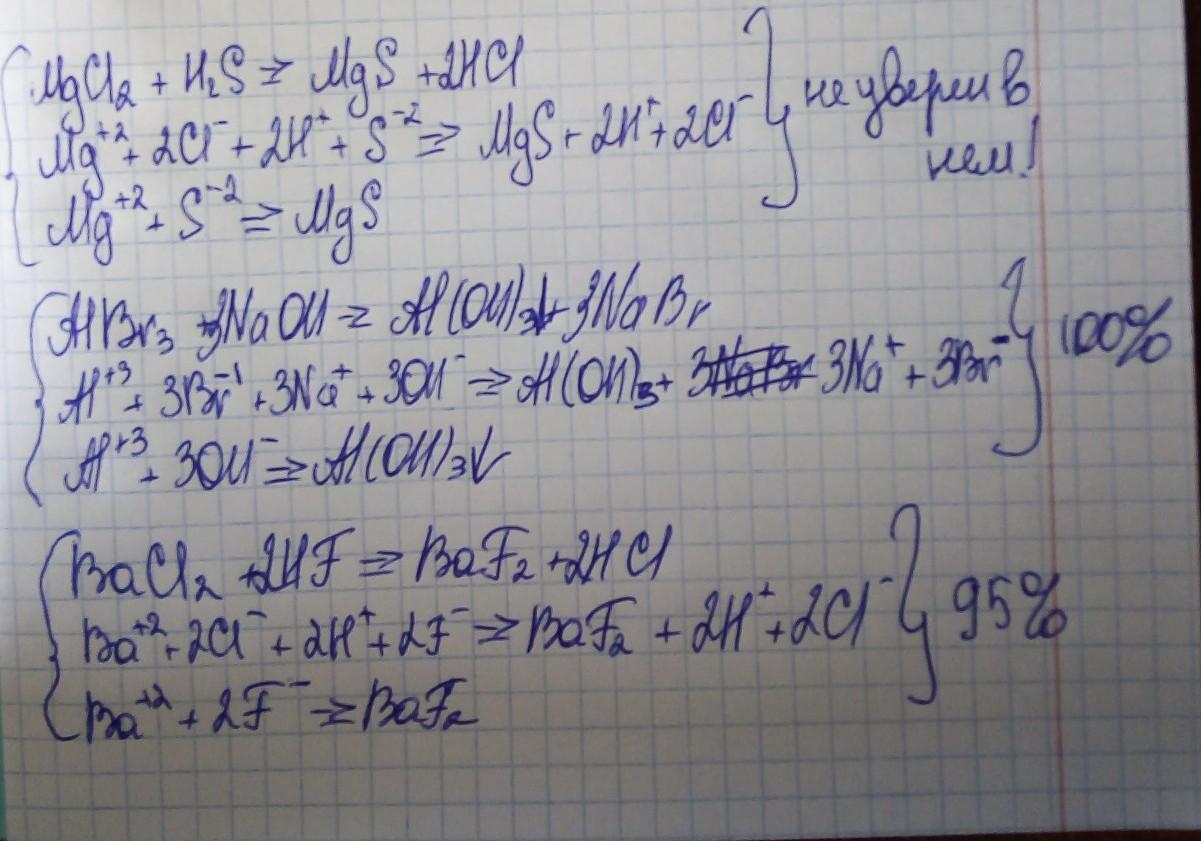 MgCl₂ + H₂S = MgS + 2HCl
Mg⁺² + 2Cl⁻ + 2H⁺ + S⁻² => MgS + 2H⁺ + 2Cl⁻
Mg⁺² + S⁻² => MgS
не уверен в
нем!
AlBr₃ + 3NaOH = Al(OH)₃↓ + 3NaBr
Al⁺³ + 3Br⁻¹ + 3Na⁺ + 3OH⁻ => Al(OH)₃ + 3Na⁺ + 3Br⁻
Al⁺³ + 3OH⁻ => Al(OH)₃↓
100%
BaCl₂ + 2HF => BaF₂ + 2HCl
Ba⁺² + 2Cl⁻ + 2H⁺ + 2F⁻ => BaF₂ + 2H⁺ + 2Cl⁻
Ba⁺² + 2F⁻ => BaF₂
95%